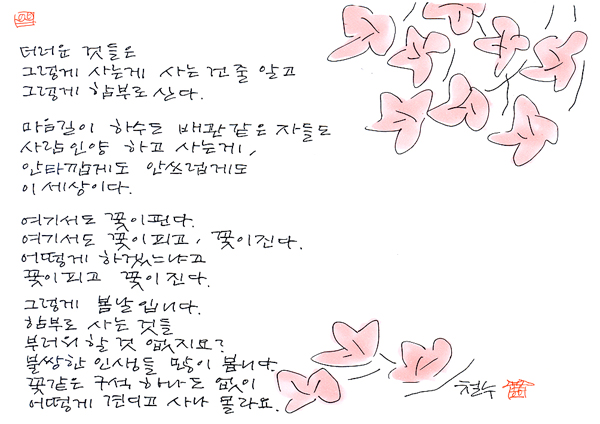 더러운 것들은
그렇게 사는게 사는건줄 알고
그렇게 함부로 산다.
마음길이 하수도 배관같은 자들도
사람인양 하고 사는게,
안타깝게도 안쓰럽게도
이 세상이다.
여기서도 꽃이핀다.
여기서도 꽃이피고, 꽃이진다.
어떻게 하겠느냐고
꽃이피고 꽃이진다.
그렇게 봄날입니다.
함부로 사는 것들
부러워할 것 없지요?
불쌍한 인생들 많이 봅니다.
꽃같은 구석 하나도 없이
어떻게 견디고 사나 몰라요.
철수